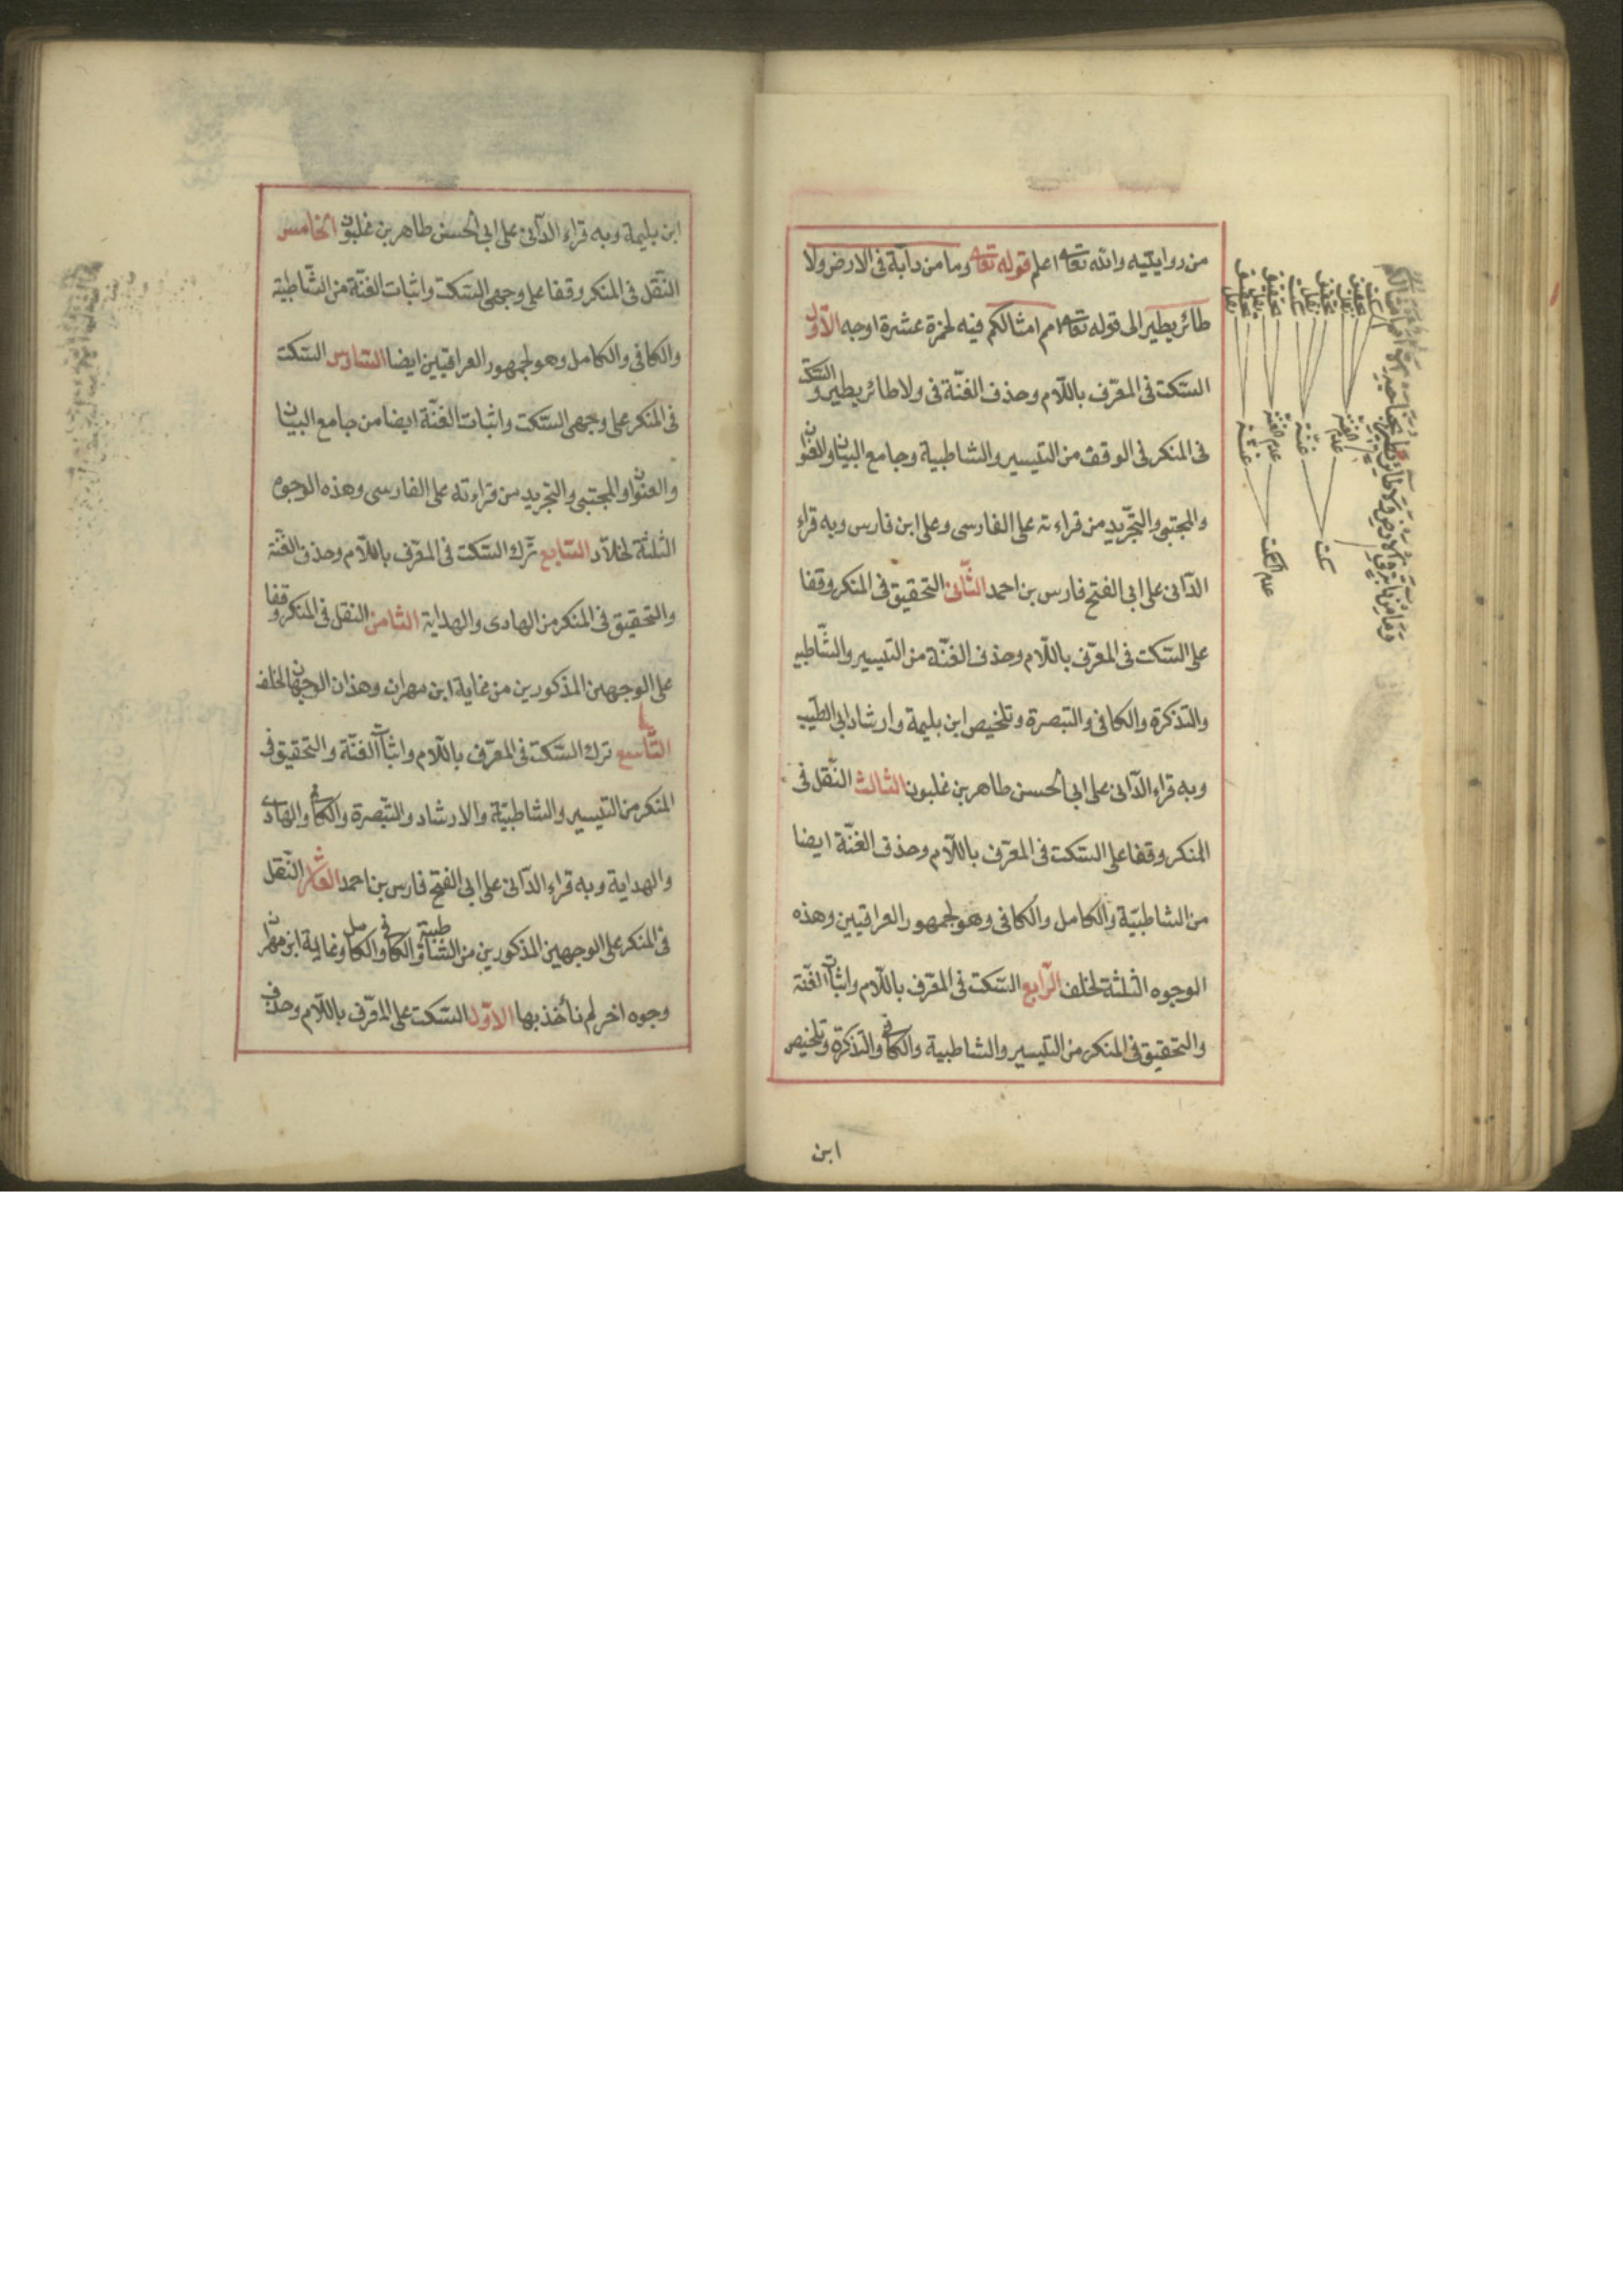 من روايتيه والله تعالى اعلم قوله تعالى وما من دآبة فى الارض ولا
طائر يطير الى قوله تعالى امم امثالكم فيه لحمزة عشرة اوجه الاوّل
السّكت فى المعرّف باللّام وحذف الغنّة فى ولا طائر يطير والسّكت
فى المنكر فى الوقف من التيسير والشاطبية وجامع البيان والعنوان
والمجتبى والتجّريد من قراءته على الفارسى وعلى ابن فارس وبه قراء
الدّانى على ابى الفتح فارس بن احمد الثّانى التحقيق فى المنكر وقفا
على السّكت فى المعرّف باللّام وحذف الغنّة من التيسير والشّاطبية
والتذكرة والكافى والتبصرة وتلخيص ابن بليمة وارشاد ابى الطيّب
وبه قراء الدّانى على ابى الحسن طاهر بن غلبون الثالث النّقل فى
المنكر وقفا على السّكت فى المعرّف باللّام وحذف الغنّة ايضا
من الشاطبيّة والكامل والكافى وهو لجمهور العراقيين وهذه
الوجوه الثلثة لخلف الرّابع السّكت فى المعّرف باللّام واثبات الغنّة
والتحقيق فى المنكر من التيسير والشاطبية والكافى والتذكرة وتلخيص
ابن
وما من دابة فى الارض ولا طائر يطير بجناحيه الا امم امثالكم
سكت تحقيق نقل تحقيق نقل سكت تحقيق نقل تحقيق نقل
عدم الغنّة غنّة عدم الغنّة غنّة
سكت عدم السكت
ابن بليمة وبه قراء الدّانى على ابى الحسن طاهر بن غلبون الخامس
النّقل فى المنكر وقفا على وجهى السّكت واثبات الغنّة من الشّاطبيّة
والكافى والكامل وهو لجمهور العراقيّين ايضا السّادس السّكت
فى المنكر على وجهى السّكت واثبات الغنّة ايضا من جامع البيان
والعنوان والمجتبى والتجريد من قراءته على الفارسى وهذه الوجوه
الثلثة لخلّاد السّابع ترك السّكت فى المعّرف باللّام وحذف الغنّة
والتحقيق فى المنكر من الهادى والهداية الثامن النقل فى المنكر وقفا
على الوجهين المذكورين من غاية ابن مهران وهذان الوجهان لخلف
التّاسع ترك السّكت فى المعرّف باللّام واثبات الغنّة والتحقيق فى
المنكر من التيسير والشاطبيّة والارشاد والتّبصرة والكافى والهادى
والهداية وبه قراء الدّانى على ابى الفتح فارس بن احمد العاشر النّقل
فى المنكر على الوجهين المذكورين من الشاطبيّة والكافى والكامل وغاية ابن مهران
وجوه اخر لم نأخذ بها الاوّل السّكت على المعّرف باللّام وحذف